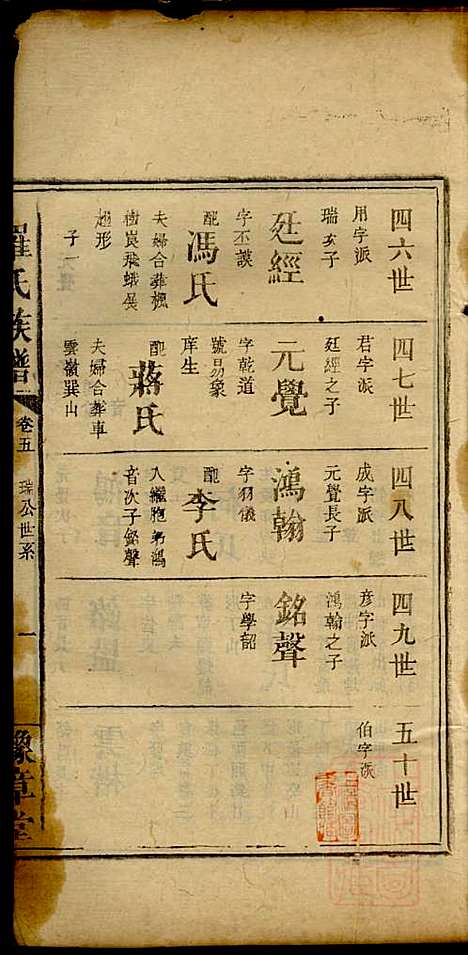 四六世
用字派
瑞亥子
廷經
字丕謨
配
馮氏
夫婦合葬楓
樹崀飛蛾展
翅形
子一
四七世
君字派
廷經之子
元覺
字乾道
號易象
庠生
配
蔣氏
夫婦合葬車
雲嶺巽山
四八世
成字派
元覺長子
鴻翰
字羽儀
配
李氏
入繼胞弟鴻
音次子銘聲
四九世
彥字派
鴻翰之子
銘聲
字學韶
五十世
伯字派
羅氏族譜
卷五
瑞公世系
一
豫章堂